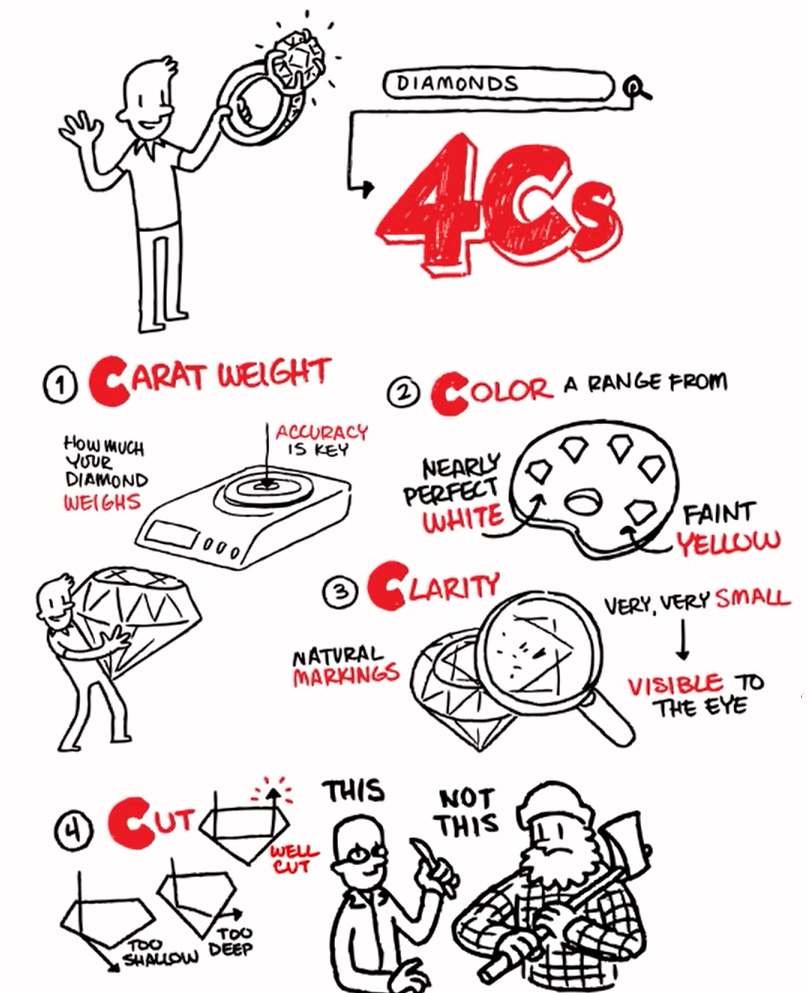 DIAMONDS
4Cs
1 CARAT WEIGHT
HOW MUCH
YOUR
DIAMOND
WEIGHS
ACCURACY
IS KEY
2 COLOR A RANGE FROM
NEARLY
PERFECT
WHITE
FAINT
YELLOW
3 CLARITY
NATURAL
MARKINGS
VERY, VERY SMALL
VISIBLE TO
THE EYE
4 CUT
WELL
CUT
TOO
SHALLOW
TOO
DEEP
THIS
NOT
THIS